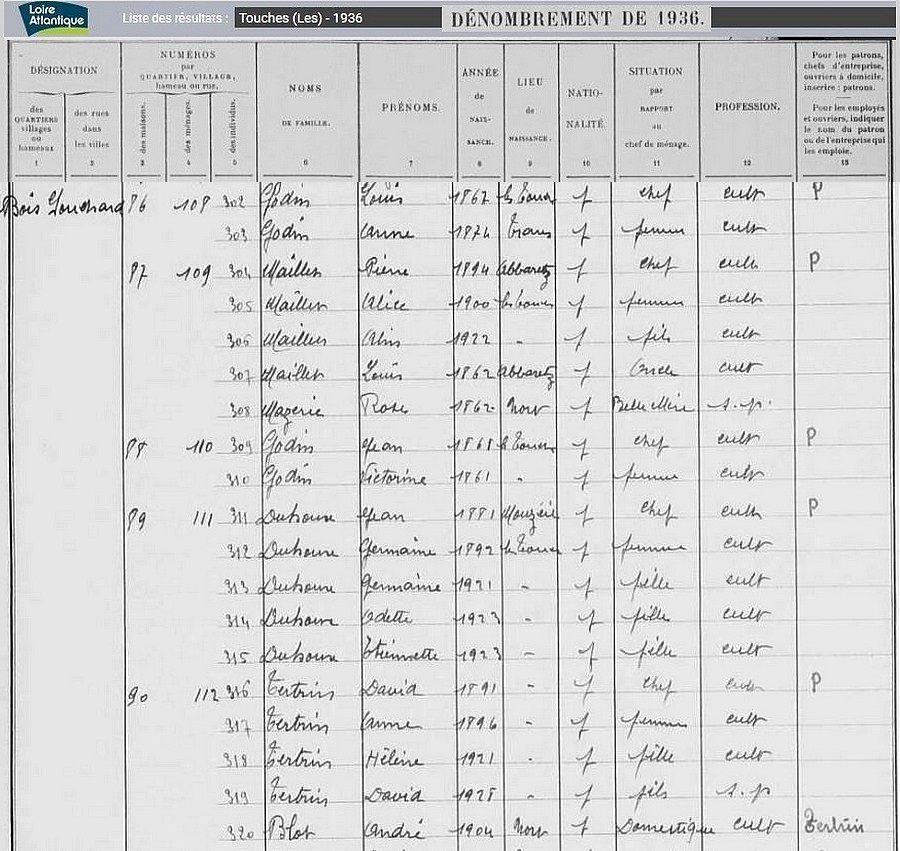 Loire Atlantique
Liste des résultats : Touches (Les) - 1936
DÉNOMBREMENT DE 1936.
DÉSIGNATION
des QUARTIERS villages ou hameaux
1
des rues dans les villes
2
NUMÉROS
par
QUARTIER, VILLAGE,
hameau ou rue.
des maisons.
3
des ménages.
4
des individus.
5
NOMS
DE FAMILLE.
6
PRÉNOMS.
7
ANNÉE
de
NAIS-
SANCE.
8
LIEU
de
NAISSANCE.
9
NATIO-
NALITÉ.
10
SITUATION
par
RAPPORT
au
chef de ménage.
11
PROFESSION.
12
Pour les patrons,
chefs d'entreprise,
ouvriers à domicile,
inscrire : patrons.
Pour les employés
et ouvriers, indiquer
le nom du patron
ou de l'entreprise qui
les emploie.
13
Bois Souchard 86 108 302 Godin Louis 1867 les Touches f chef cult P
303 Godin Anne 1874 Trans f femme cult
87 109 304 Maillet Pierre 1894 Abbaretz f chef cult P
305 Maillet Alice 1900 les Touches f femme cult
306 Maillet 1922 - f fils cult
307 Maillet Louis 1862 Abbaretz f Oncle cult
308 Mazerie Rose 1862 Nort f Belle Mère s.p.
88 110 309 Godin Jean 1868 les Touches f chef cult P
310 Godin Victorine 1861 - f femme cult
89 111 311 Duhoux Jean 1881 Mouzeil f chef cult P
312 Duhoux Germaine 1892 les Touches f femme cult
313 Duhoux Germaine 1921 - f fille cult
314 Duhoux Odette 1923 - f fille cult
315 Duhoux Etiennette 1923 - f fille cult
90 112 316 Tertrin David 1891 - f chef cult P
317 Tertrin Anne 1896 - f femme cult
318 Tertrin Hélène 1921 - f fille cult
319 Tertrin David 1928 - f fils s.p
320 Blot André 1904 Nort f Domestique cult Tertrin